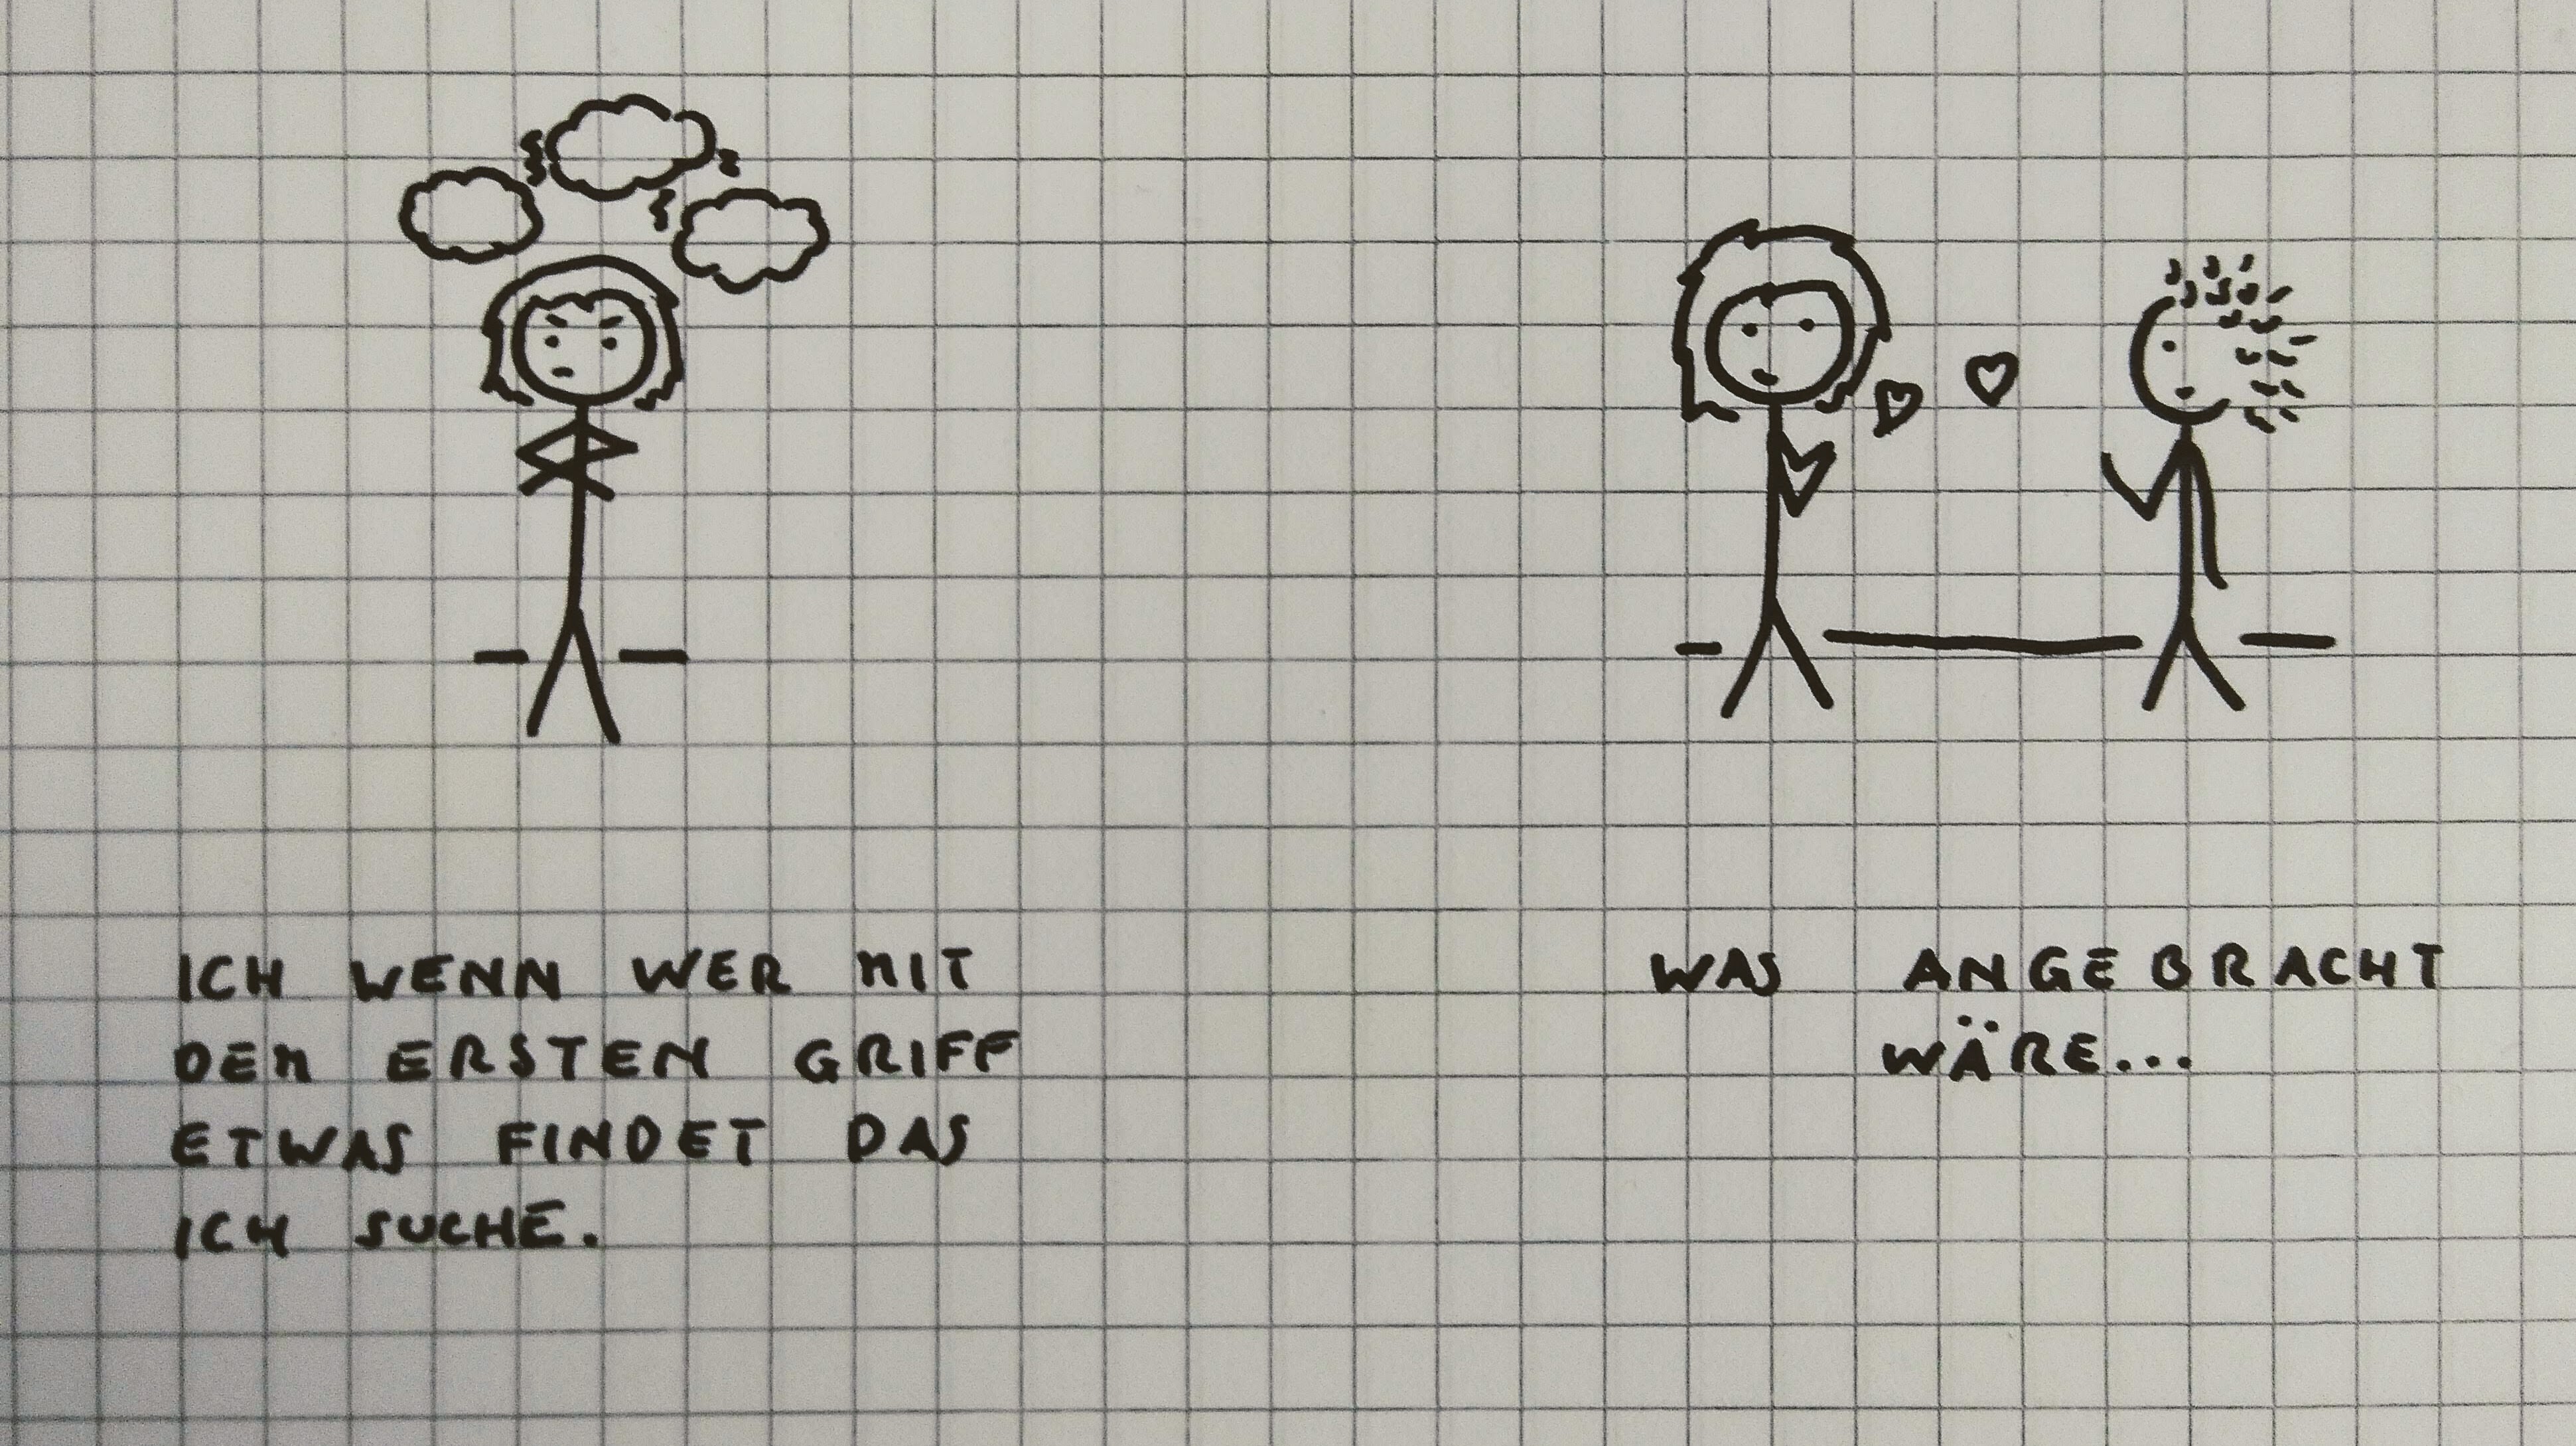 ICH WENN WER MIT
DEM ERSTEN GRIFF
ETWAS FINDET DAS
ICH SUCHE.
WAS ANGEBRACHT
WÄRE...